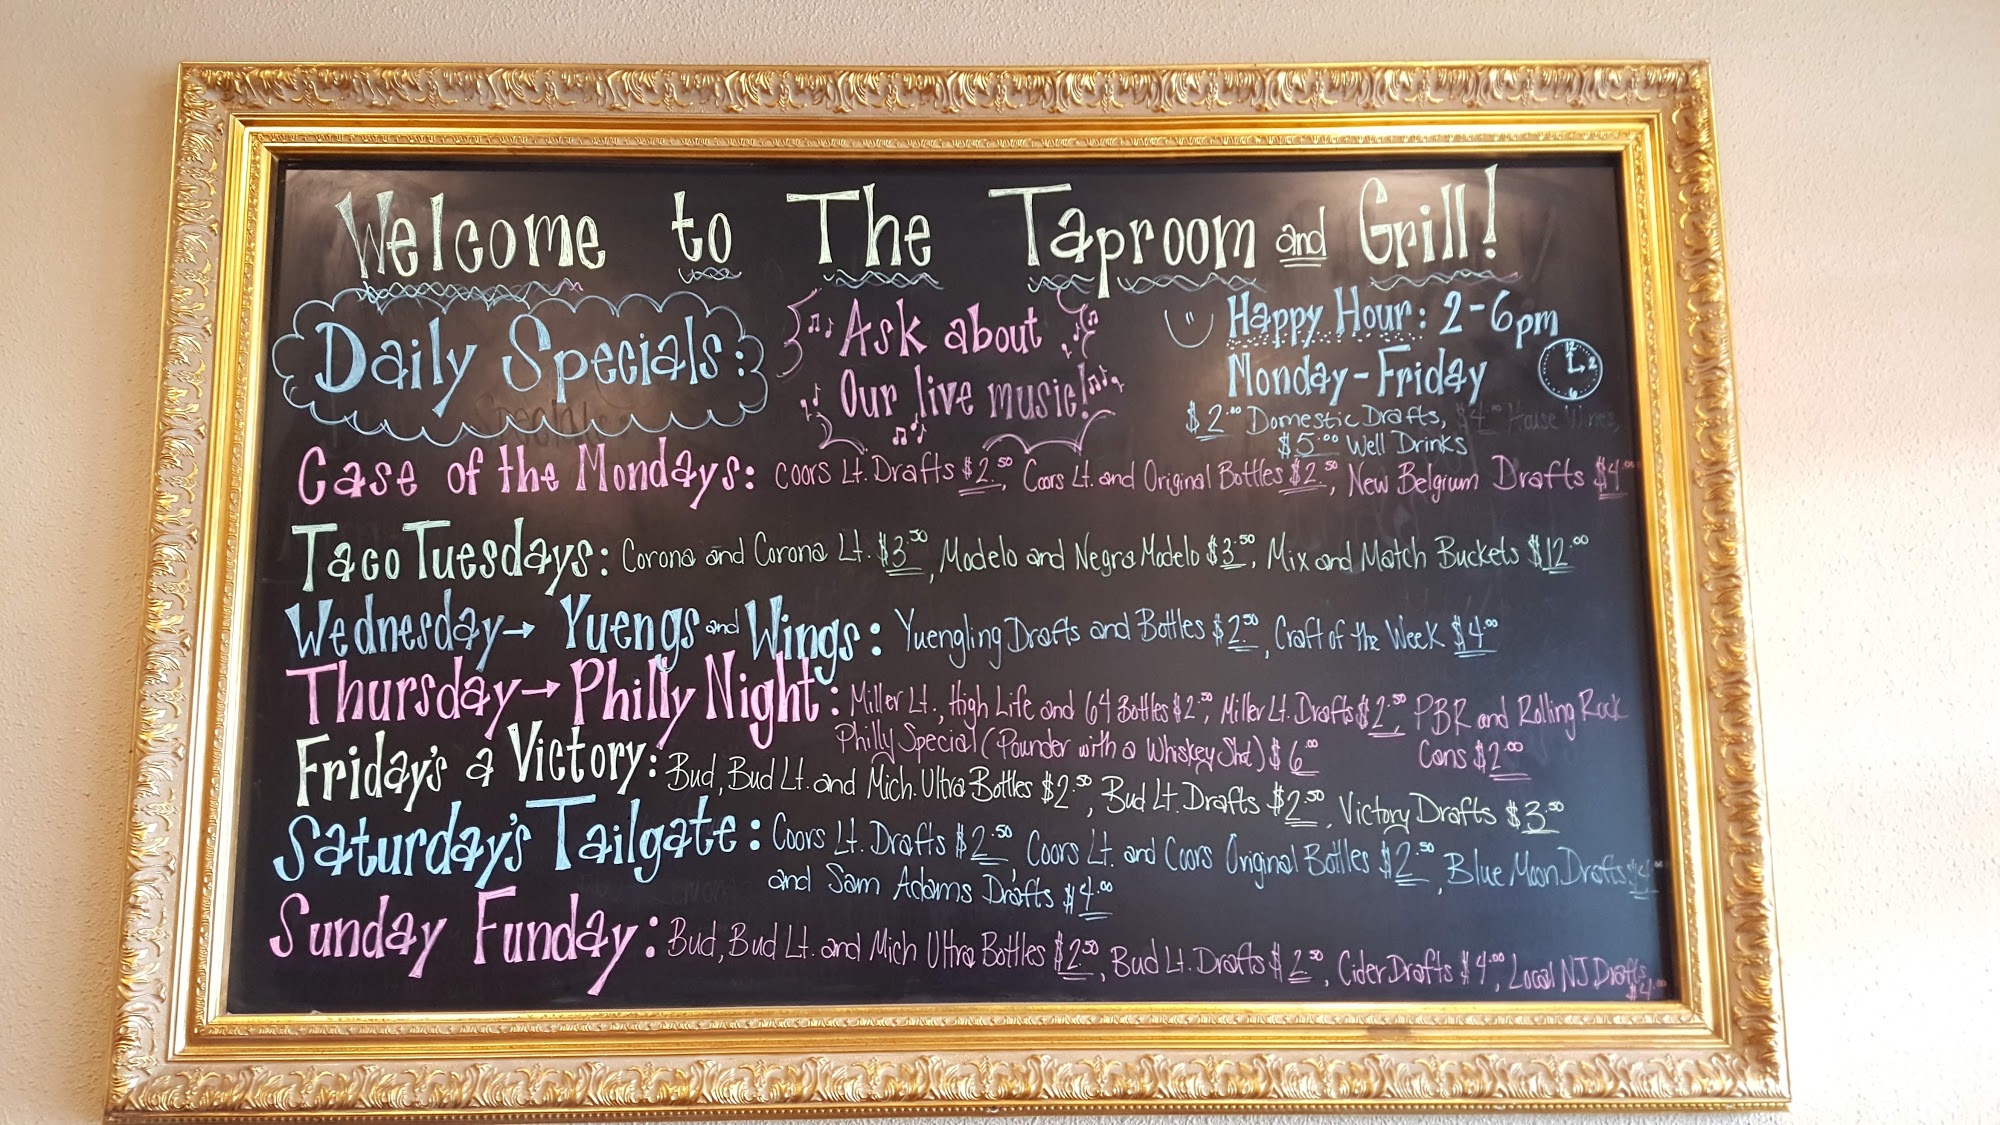 Welcome to The Taproom and Grill!
Daily Specials:
Ask about
Our live music!
Happy Hour: 2-6pm
Monday-Friday
12
2
$2.00 Domestic Drafts, $4.00 House Wines,
$5.00 Well Drinks
Case of the Mondays: Coors Lt. Drafts $2.50, Coors Lt. and Original Bottles $2.50, New Belgium Drafts $4.00
Taco Tuesdays: Corona and Corona Lt. $3.50, Modelo and Negra Modelo $3.50, Mix and Match Buckets $12.00
Wednesday→ Yuengs and Wings: Yuengling Drafts and Bottles $2.50, Craft of the Week $4.00
Thursday→ Philly Night: Miller Lt., High Life and 64 Bottles $2.50, Miller Lt. Drafts $2.50, PBR and Rolling Rock
Philly Special (Pounder with a Whiskey Shot) $6.00 Cans $2.00
Friday's a Victory: Bud, Bud Lt. and Mich. Ultra Bottles $2.50, Bud Lt. Drafts $2.50, Victory Drafts $3.50
Saturday's Tailgate: Coors Lt. Drafts $2.50, Coors Lt. and Coors Original Bottles $2.50, Blue Moon Drafts $4.00
and Sam Adams Drafts $4.00
Sunday Funday: Bud, Bud Lt. and Mich Ultra Bottles $2.50, Bud Lt. Drafts $2.50, Cider Drafts $4.00, Local NJ Drafts
$4.00